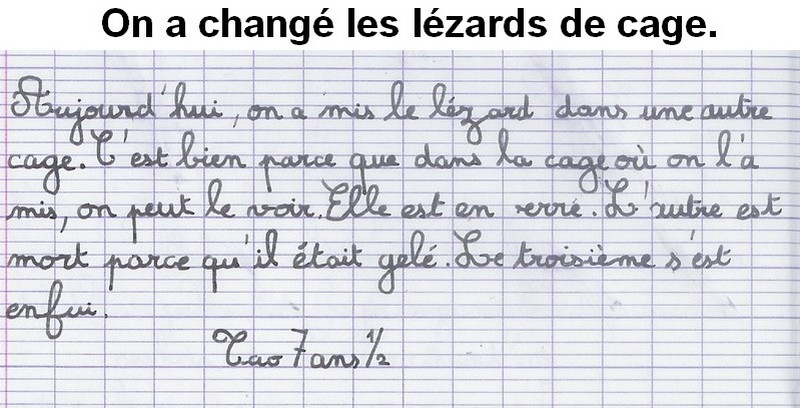 On a changé les lézards de cage.
Aujourd'hui, on a mis le lézard dans une autre
cage. C'est bien parce que dans la cage où on l'a
mis, on peut le voir. Elle est en verre. L'autre est
mort parce qu'il était gelé. Le troisième s'est
enfui.
Tao 7 ans 1/2